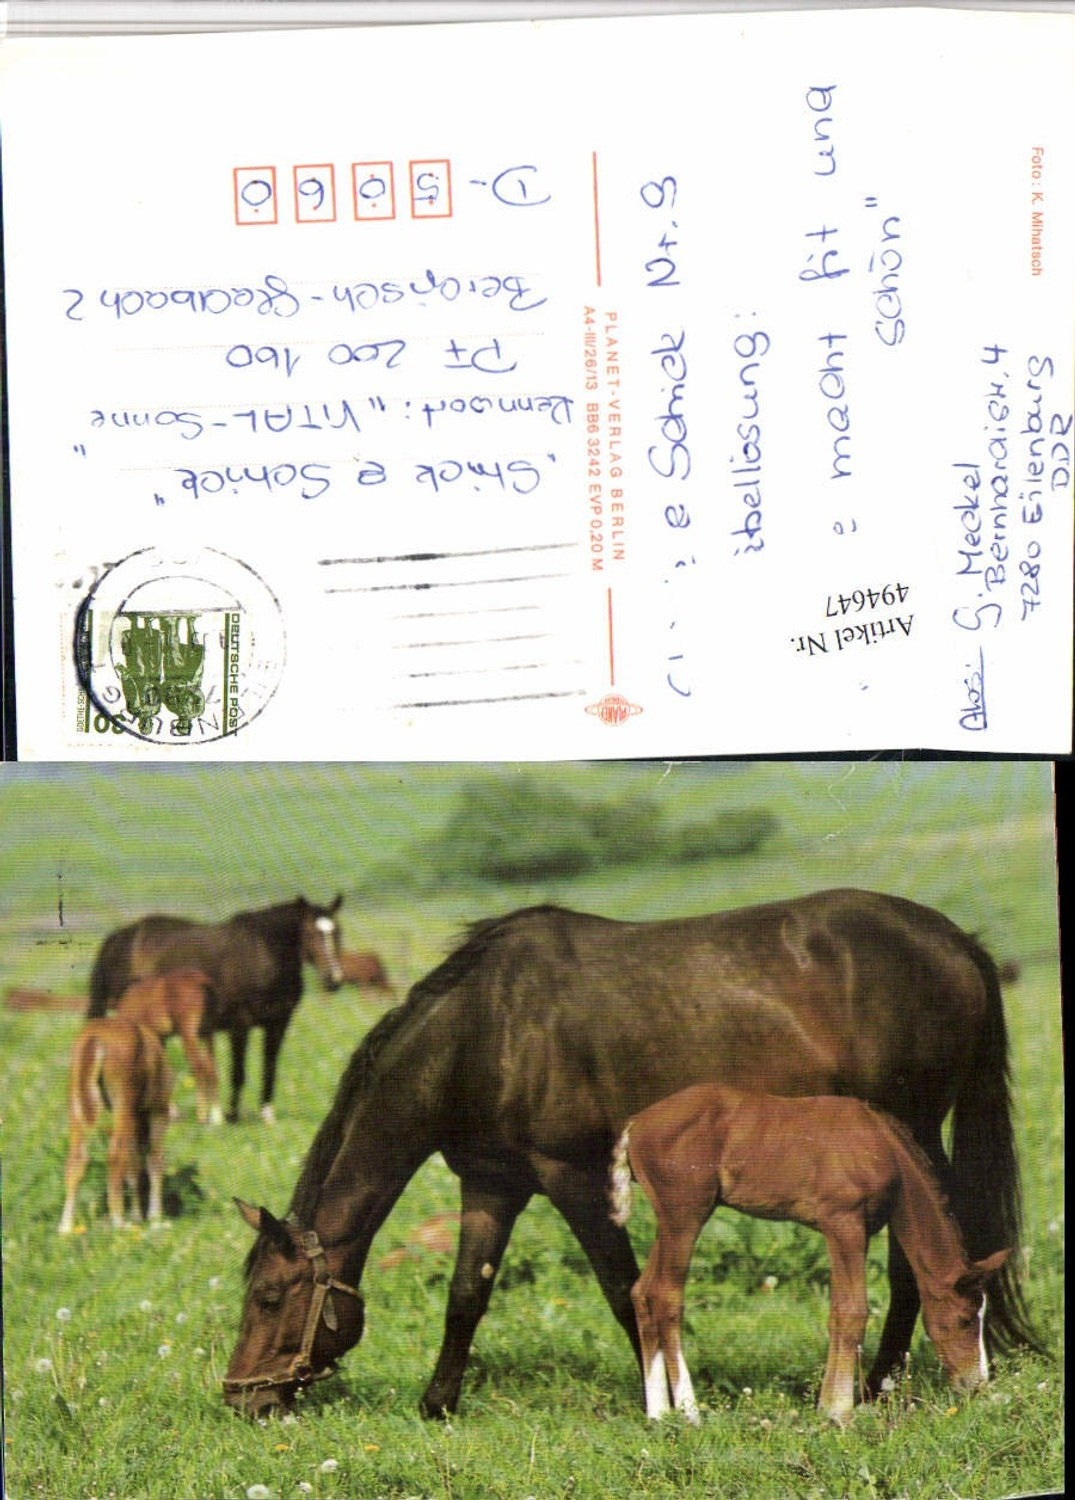 "Chick & Schick"
Kennwort: "VITAL-Sonne"
PF 200 160
Bergisch-Gladbach 2
D- 5 0 6 0
DEUTSCHE POST
30
PLANET-VERLAG BERLIN
A4-III/26/13 BB6 3242 EVP 0,20 M
PLANET
& Schick Nr. 8
ibellösung:
macht fit und
schön"
Artikel Nr.
494647
Abs.: G. Meckel
Bernhardistr. 4
7280 Eilenburg
DDR
Foto: K. Mihatsch